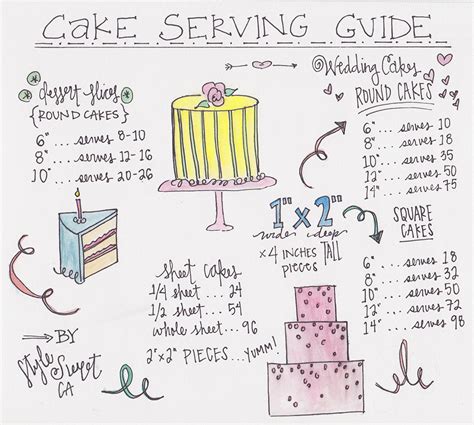 CAKE SERVING GUIDE
dessert slices
{ROUND CAKES}
6" ... serves 8-10
8" ... serves 12-16
10" ... serves 20-26
Wedding Cakes
ROUND CAKES
6" ... serves 10
8" .... serves 18
10" ... serves 35
12" ... serves 50
14" .. serves 75
1" x 2"
wide deep
x 4 INCHES TALL
PIECES
SQUARE
CAKES
6" ... serves 18
8" ... serves 32
10" ... serves 50
12" ... serves 72
14" ... serves 98
sheet cakes
1/4 sheet ... 24
1/2 sheet ... 54
whole sheet ... 96
2"x2" PIECES...yumm!
BY
Style Sweet
CA